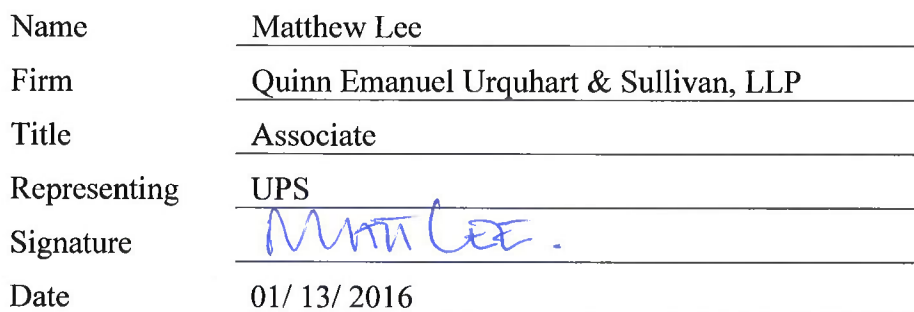 Name Matthew Lee
Firm Quinn Emanuel Urquhart & Sullivan, LLP
Title Associate
Representing UPS
Signature Matt Lee.
Date 01/ 13/ 2016